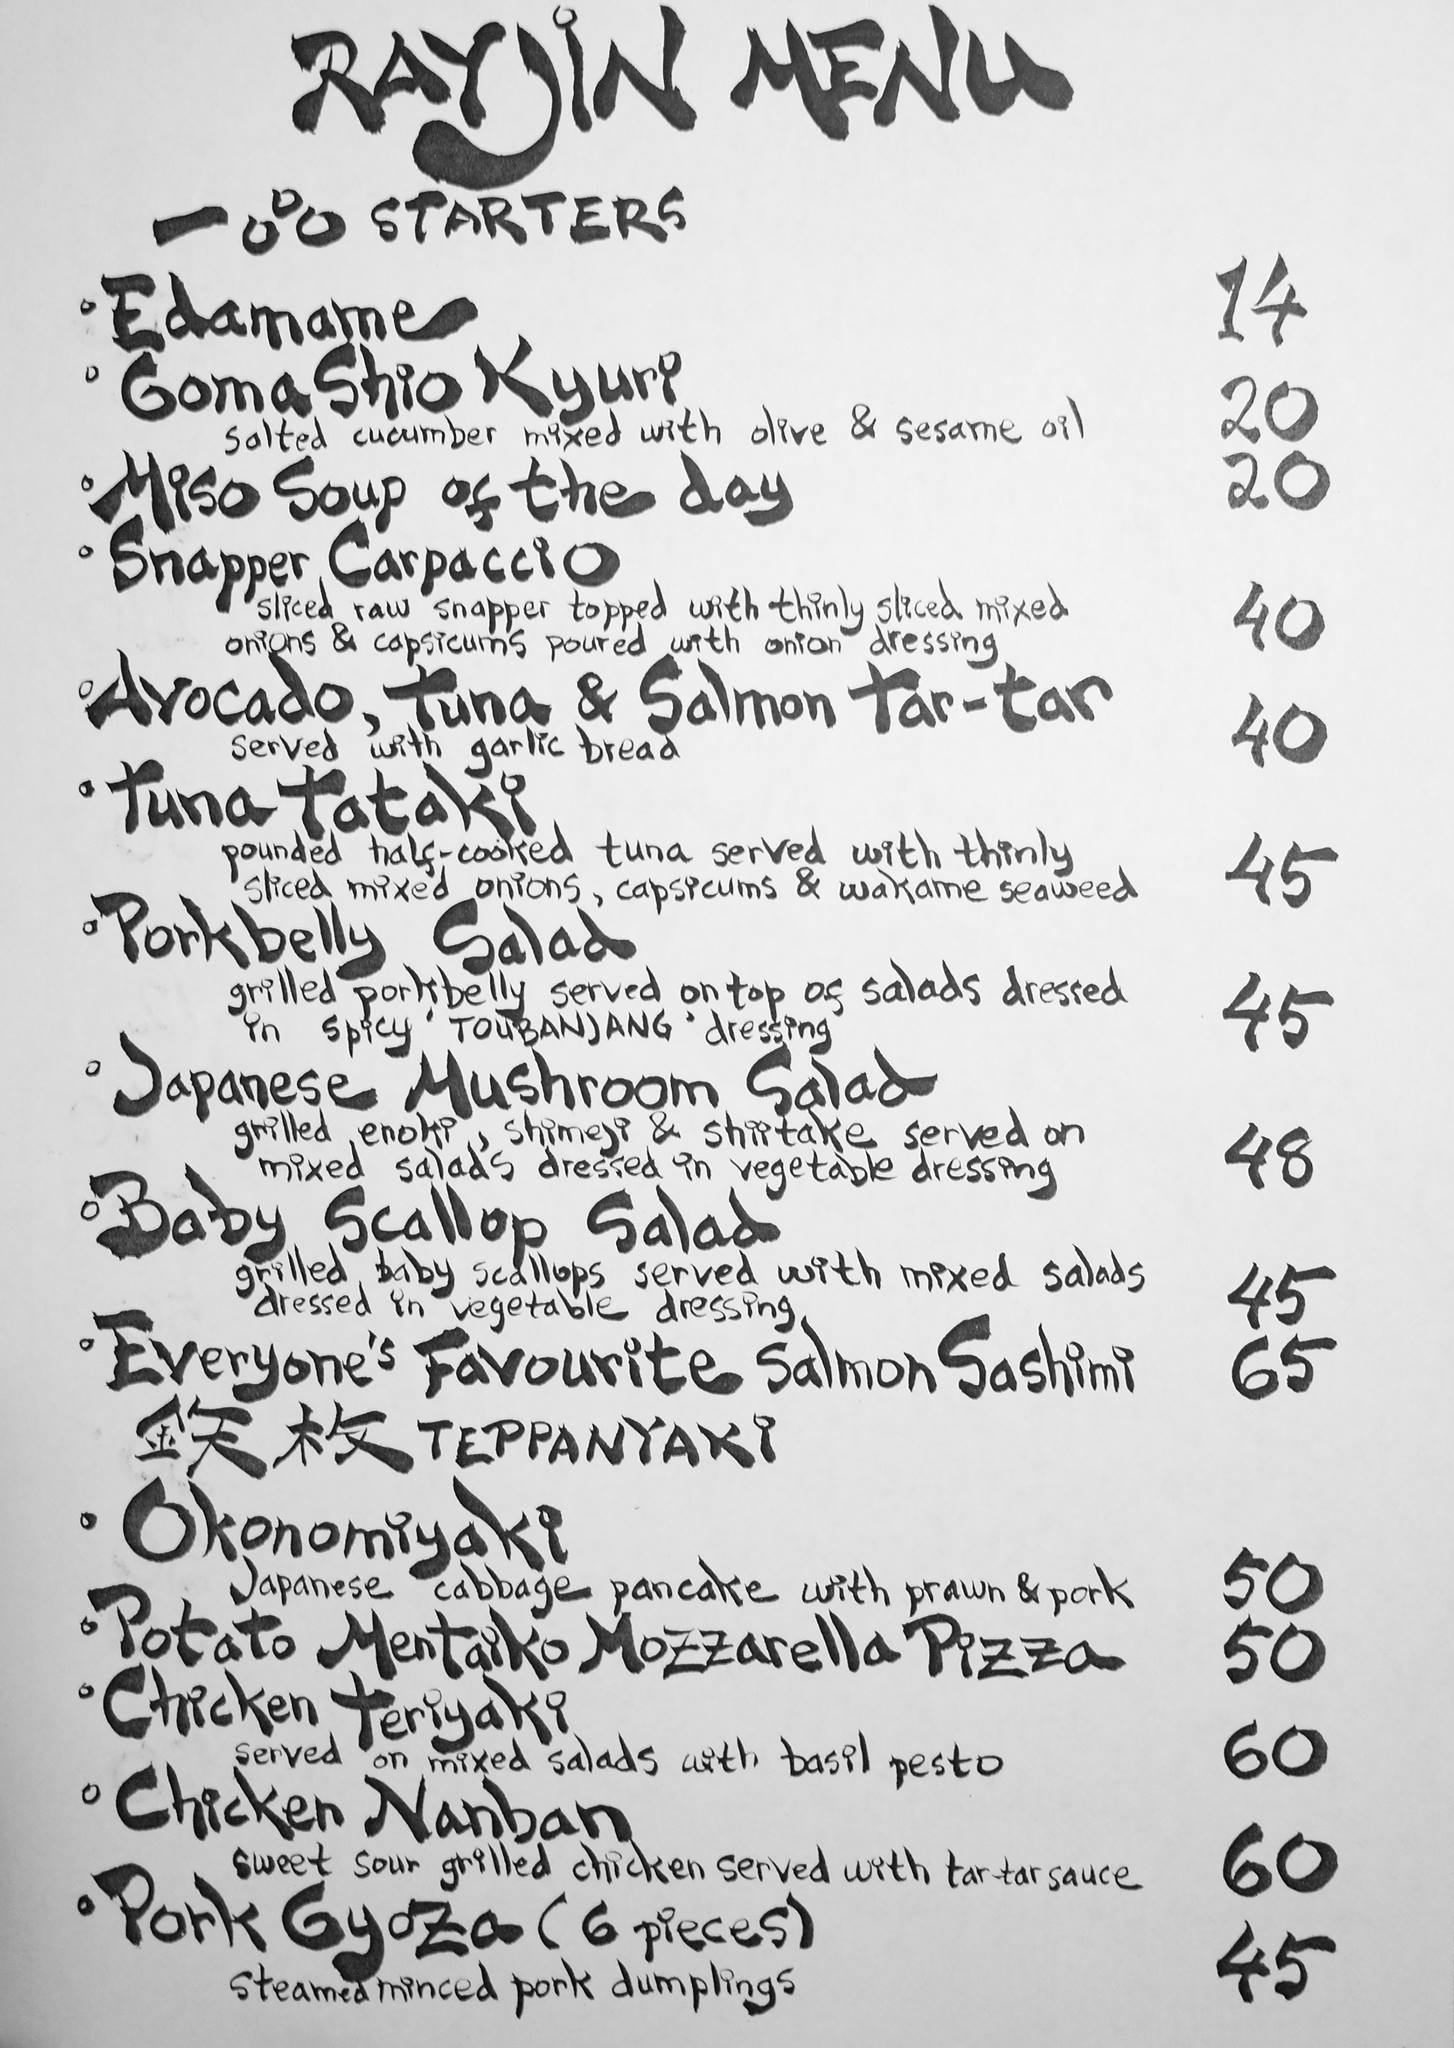 RAYJIN MENU
一品 STARTERS
Edamame 14
Goma Shio Kyuri
salted cucumber mixed with olive & sesame oil 20
Miso Soup of the day 20
Snapper Carpaccio
sliced raw snapper topped with thinly sliced mixed
onions & capsicums poured with onion dressing 40
Avocado, Tuna & Salmon Tar-tar
served with garlic bread 40
Tuna Tataki
pounded half-cooked tuna served with thinly
sliced mixed onions, capsicums & wakame seaweed 45
Porkbelly Salad
grilled porkbelly served on top of salads dressed
in spicy 'TOUBANJANG' dressing 45
Japanese Mushroom Salad
grilled enoki, shimeji & shiitake served on
mixed salads dressed in vegetable dressing 48
Baby Scallop Salad
grilled baby scallops served with mixed salads
dressed in vegetable dressing 45
Everyone's Favourite Salmon Sashimi 65
鉄板 TEPPANYAKI
Okonomiyaki
Japanese cabbage pancake with prawn & pork 50
Potato Mentaiko Mozzarella Pizza 50
Chicken Teriyaki
served on mixed salads with basil pesto 60
Chicken Nanban
sweet sour grilled chicken served with tar-tar sauce 60
Pork Gyoza (6 pieces)
steamed minced pork dumplings 45